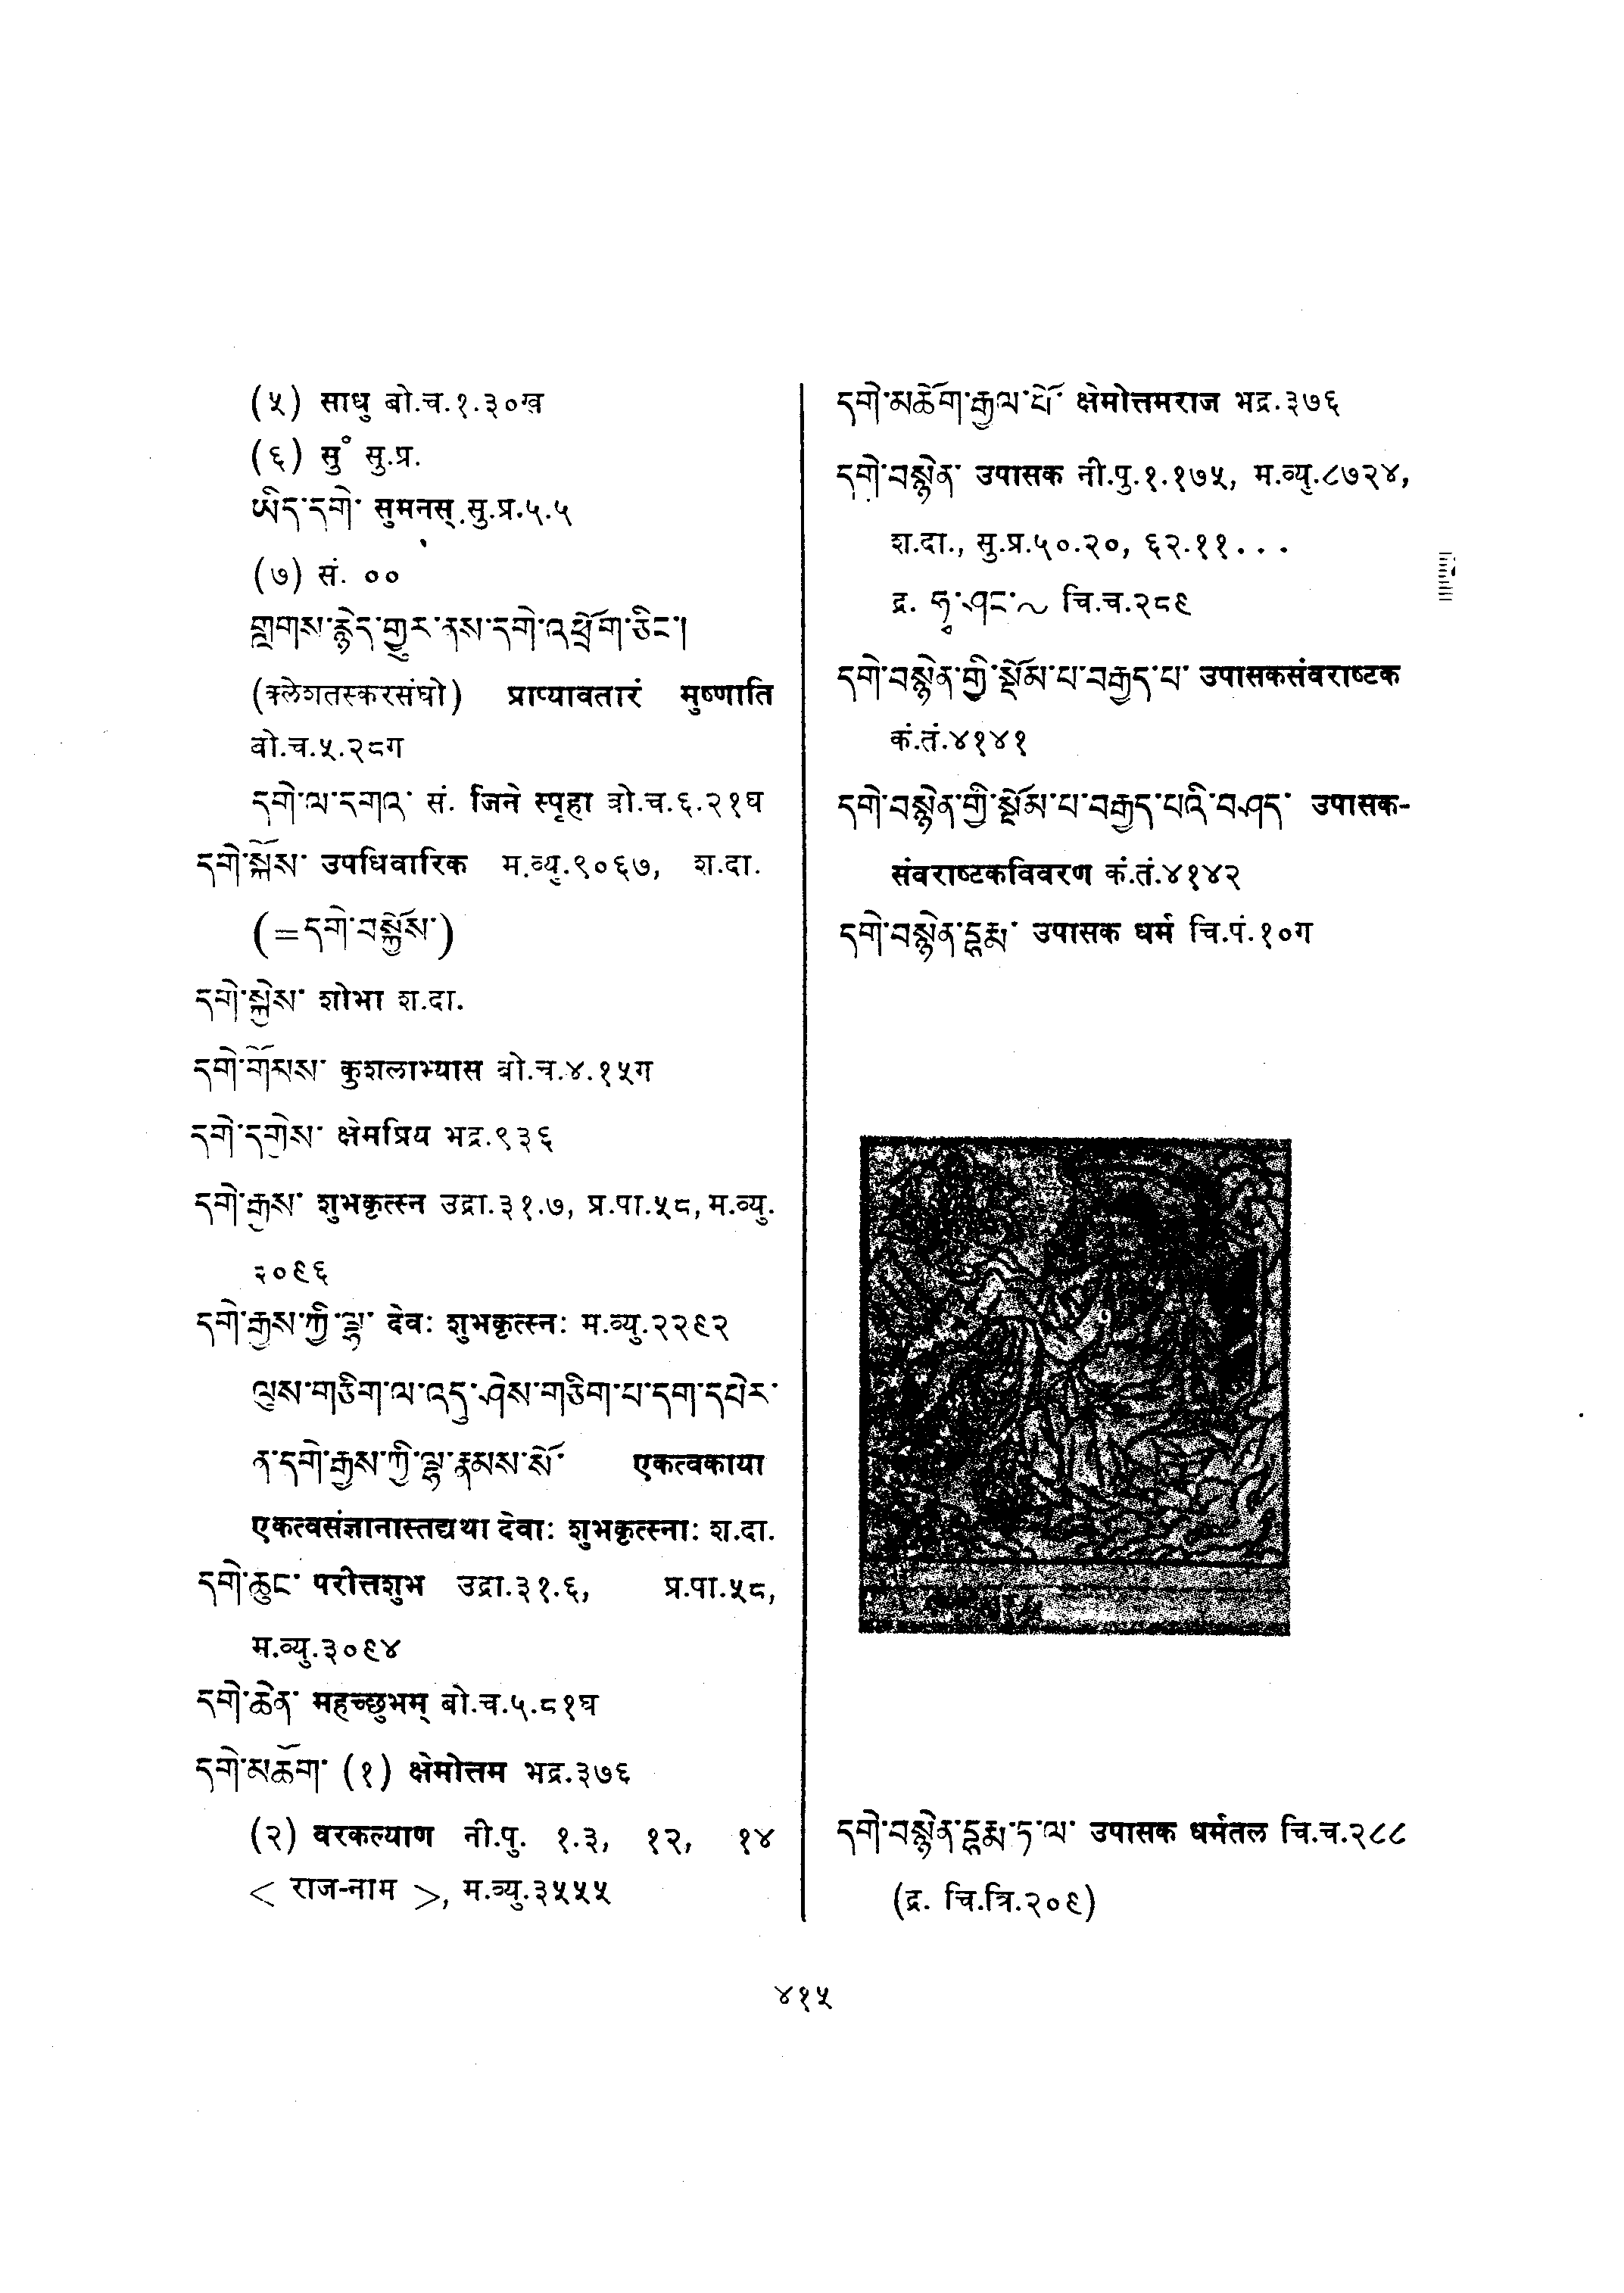 (५) साधु बो.च.१.३०ख
(६) सु॰ सु.प्र.
ཡིད་དགེ་ सुमनस् सु.प्र.५.५
(७) सं. ००
གླགས་རྙེད་གྱུར་ནས་དགེ་འཕྲོག་ཅིང་།
(क्लेशतस्करसंघो) प्राप्यावतारं मुष्णाति
बो.च.५.२८ग
དགེ་ལ་དགའ་ सं. जिने स्पृहा बो.च.६.२१घ
དགེ་སྐོས་ उपधिवारिक म.व्यु.९०६७, श.दा.
(=དགེ་བསྐྱོས་)
དགེ་སྐྱེས་ शोभा श.दा.
དགེ་གོམས་ कुशलाभ्यास बो.च.४.१५ग
དགེ་དགྱེས་ क्षेमप्रिय भद्र.९३६
དགེ་རྒྱས་ शुभकृत्स्न उद्रा.३१.७, प्र.पा.५८, म.व्यु.
३०९६
དགེ་རྒྱས་ཀྱི་ལྷ་ देवः शुभकृत्स्नः म.व्यु.२२९२
ལུས་གཅིག་ལ་འདུ་ཤེས་གཅིག་པ་དག་དཔེར་
ན་དགེ་རྒྱས་ཀྱི་ལྷ་རྣམས་སོ་ एकत्वकाया
एकत्वसंज्ञानास्तद्यथा देवाः शुभकृत्स्नाः श.दा.
དགེ་ཆུང་ परीत्तशुभ उद्रा.३१.६, प्र.पा.५८,
म.व्यु.३०९४
དགེ་ཆེན་ महच्छुभम् बो.च.५.८१घ
དགེ་མཆོག་ (१) क्षेमोत्तम भद्र.३७६
(२) वरकल्याण नी.पु. १.३, १२, १४
< राज-नाम >, म.व्यु.३५५५
དགེ་མཆོག་རྒྱལ་པོ་ क्षेमोत्तमराज भद्र.३७६
དགེ་བསྙེན་ उपासक नी.पु.१.१७५, म.व्यु.८७२४,
श.दा., सु.प्र.५०.२०, ६२.११...
द्र. ཧྭ་ཤང་~ चि.च.२८९
དགེ་བསྙེན་གྱི་སྡོམ་པ་བརྒྱད་པ་ उपासकसंवराष्टक
कं.तं.४१४१
དགེ་བསྙེན་གྱི་སྡོམ་པ་བརྒྱད་པའི་བཤད་ उपासक-
संवराष्टकविवरण कं.तं.४१४२
དགེ་བསྙེན་དྷརྨ་ उपासक धर्म चि.पं.१०ग
དགེ་བསྙེན་དྷརྨ་ཏ་ལ་ उपासक धर्मतल चि.च.२८८
(द्र. चि.त्रि.२०९)
४१५